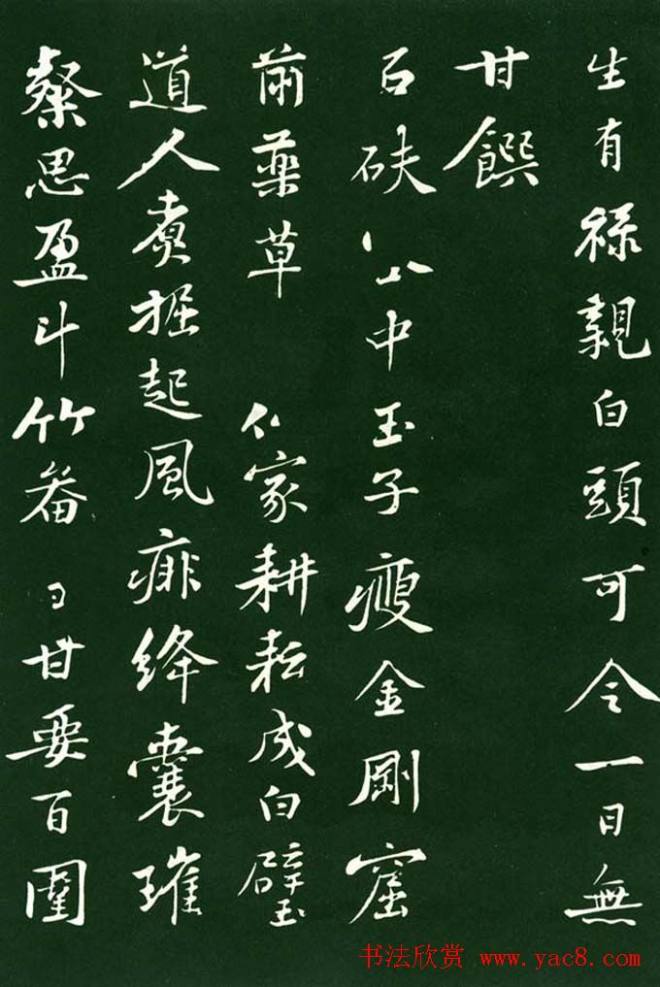 生有祿親白頭可令一日無
甘饌
石砆中玉子瘦金剛窟
前藥草家耕耘成白璧
道人煮掘起風痱絳囊璀
粲思盈斗竹畨甘要百圍
书法欣赏 www.yac8.com